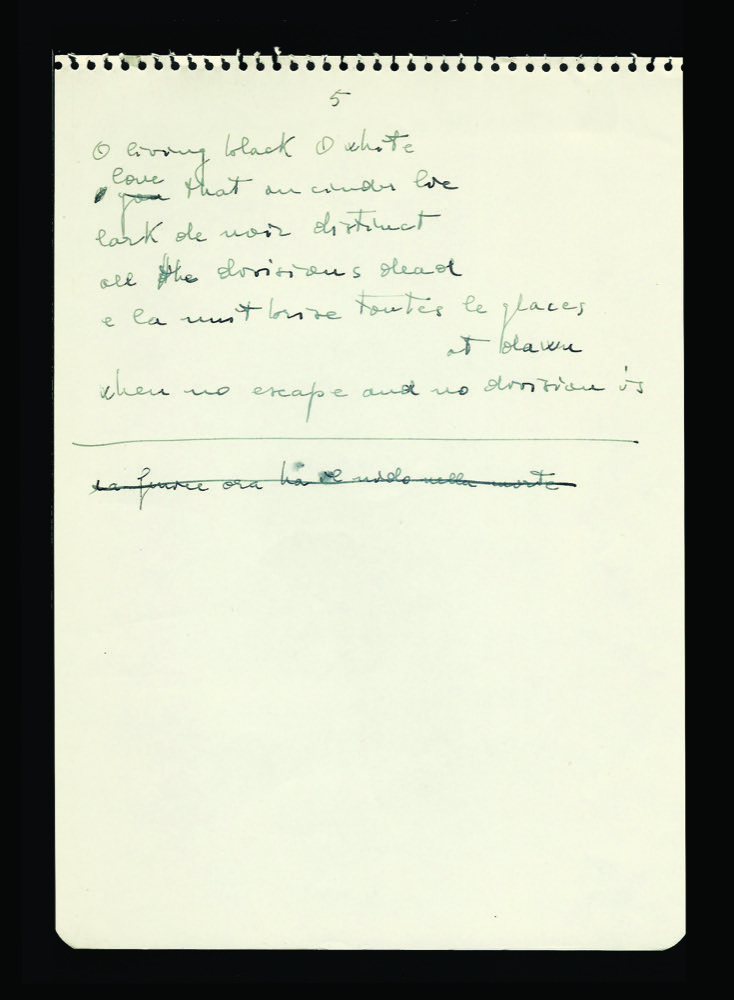 5
O living black O white
love
you that on cinders lie
lark de noir distinct
all the divisions dead
e la nuit brise toutes le glaces
at dawn
when no escape and no division is
ora ha il nido nella morte